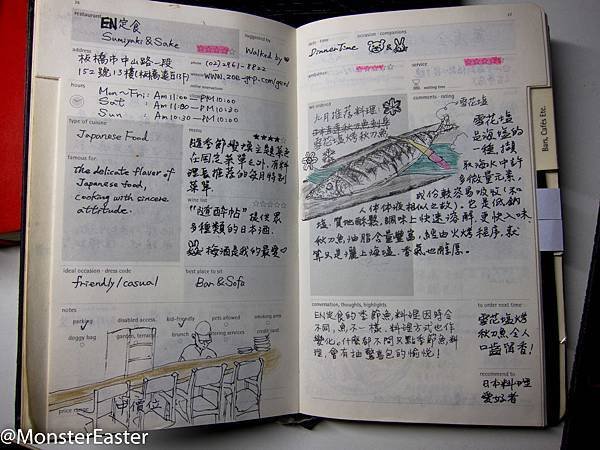 36
restaurant
EN定食
Sumiyaki & Sake
suggested by
Walked by
address
板橋市中山路一段
152號13樓(板橋遠百13F)
phone
(02)2961-8822
www.
hours
Mon~Fri: Am 11:00 — PM 10:00
Sat : Am 11:00 — PM 10:30
Sun : Am 10:30 — PM 10:00
type of cuisine
Japanese Food
famous for
The delicate flavor of
Japanese food,
cooking with sincere
attitude.
menu
隨季節變換主題菜色
在固定菜單之外,有料
理長推薦的每月特制
菜單.
wine list
"隨酔帖"提供眾
多種類的日本酒
梅酒是我的最愛
ideal occasion · dress code
friendly/casual
best place to sit
Bar & Sofa
notes
parking
disabled access
kid-friendly
pets allowed
smoking area
doggy bag
garden, terrace
brunch
catering services
credit card
price range
中價位
37
date · time
DinnerTime
occasion · companions
&
ambience
service
waiting time
we ordered
九月推荐料理
雪花塩烤秋刀魚
comments · rating
雪花塩
雪花塩
是海塩的
一種,擷
取海水中許
多微量元素,
或份較容易吸收(和
人体体液相似之故).它是低鈉
塩,質地酥鬆,瞬味上快速溶解,更快入味.
秋刀魚油脂含量豐富,經由火烤程序,就
算只是灑上海塩,香氣也醇厚.
conversation, thoughts, highlights
EN定食的季節魚料理因時令
不同,魚不一樣,料理方式也作
變化。什麼都不問只點季節魚料
理,會有抽驚喜包的愉悅!
to order next time
雪花塩烤
秋刀魚令人
口齒留香!
recommended to
日本料理
愛好者
Bars, Cafés Etc.
@MonsterEaster